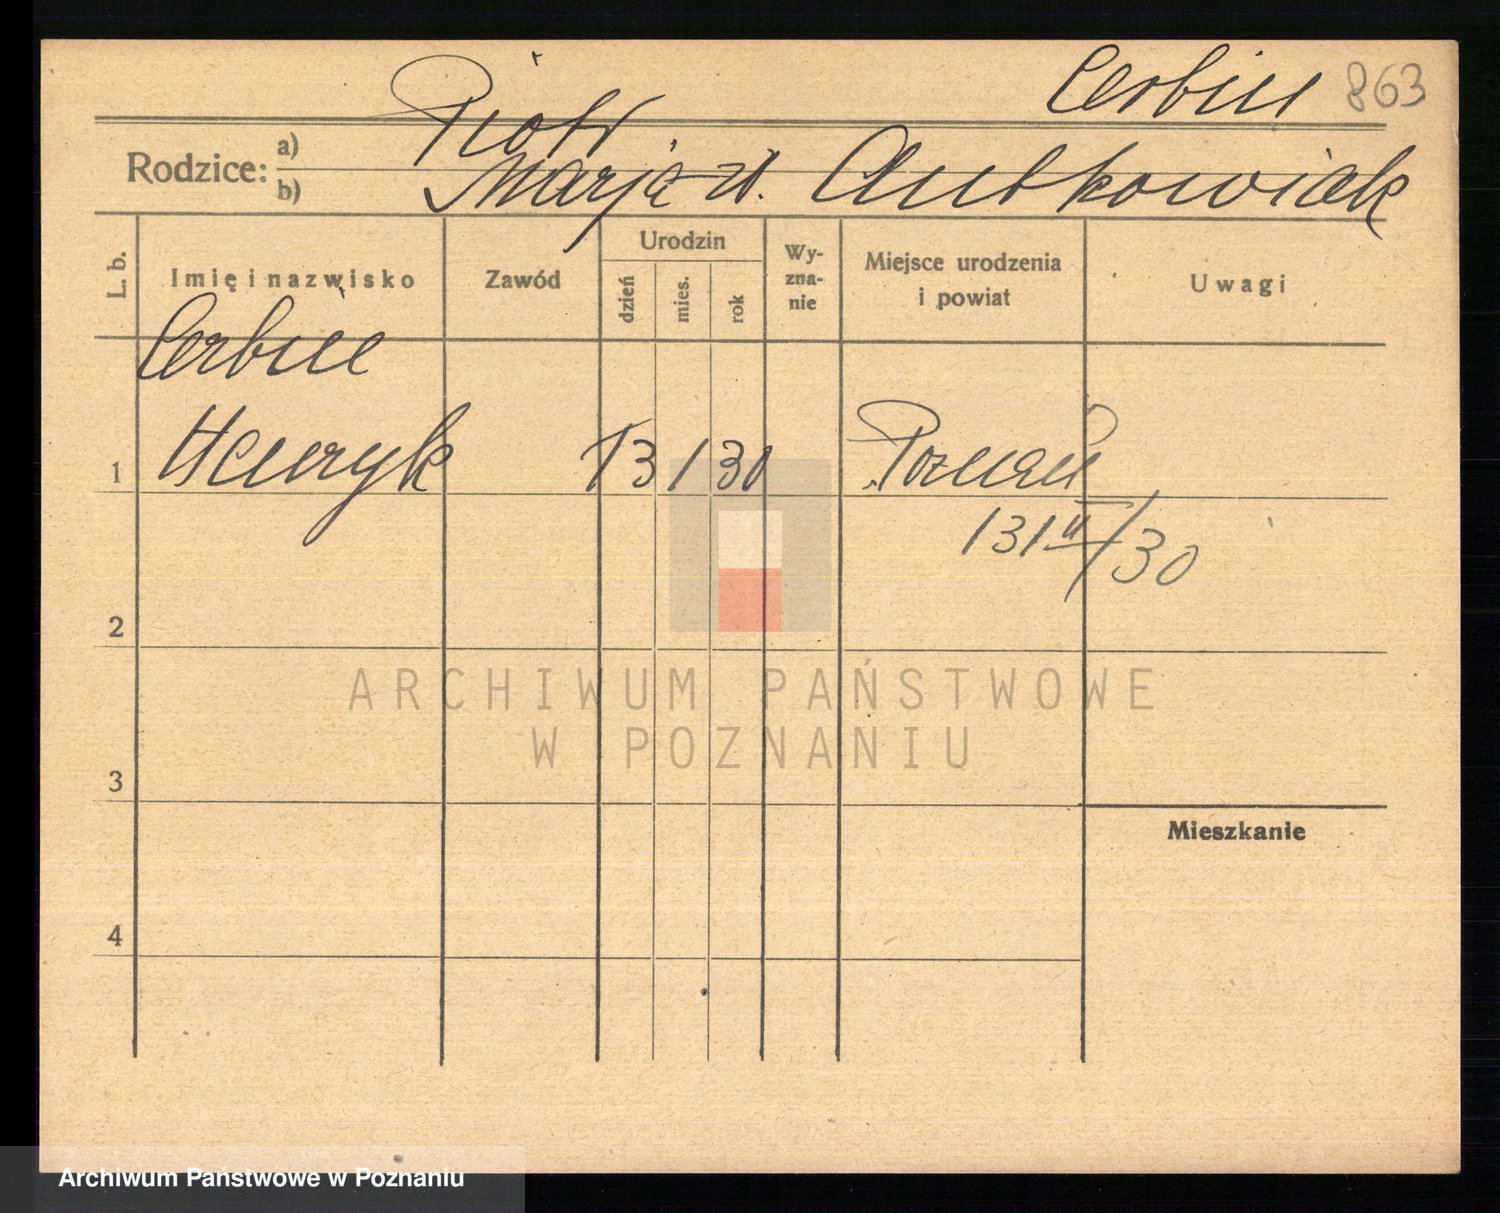 Cerbin 863
Rodzice: a) Piotr
b) Marja zd. Antkowiak
L. b. Imię i nazwisko Zawód Urodzin dzień mies. rok Wy-zna-nie Miejsce urodzenia i powiat Uwagi
Cerbin
1 Henryk 13 1 30 Poznań
13 1 II/30
2
ARCHIWUM PAŃSTWOWE
W POZNANIU
3
Mieszkanie
4
Archiwum Państwowe w Poznaniu